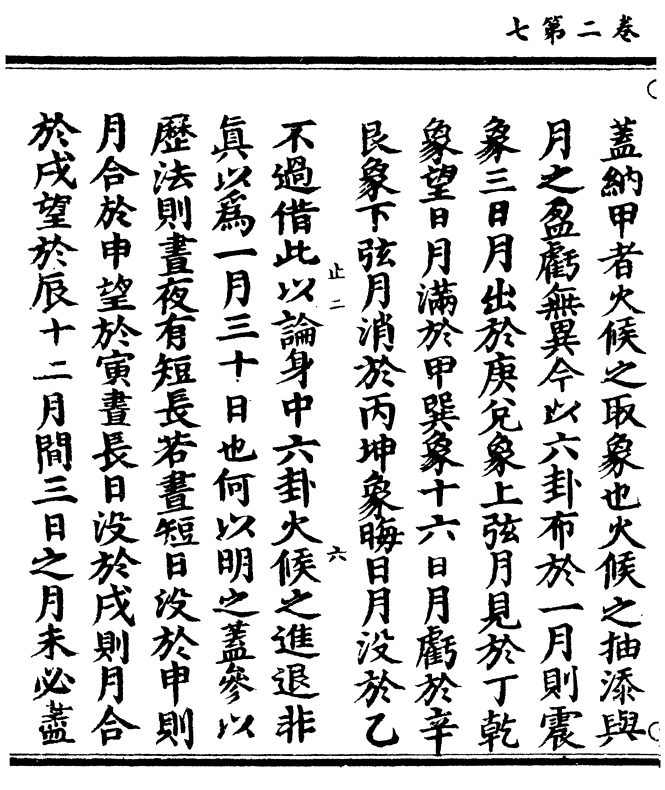 卷二第七
蓋納甲者火候之取象也火候之抽添與
月之盈虧無異今以六卦布於一月則震
象三日月出於庚兌象上弦月見於丁乾
象望日月滿於甲巽象十六日月虧於辛
艮象下弦月消於丙坤象晦日月没於乙
止二 六
不過借此以論身中六卦火候之進退非
眞以爲一月三十日也何以明之蓋參以
歷法則晝夜有短長若晝短日没於申則
月合於申望於寅晝長日没於戌則月合
於戌望於辰十二月間三日之月未必盡